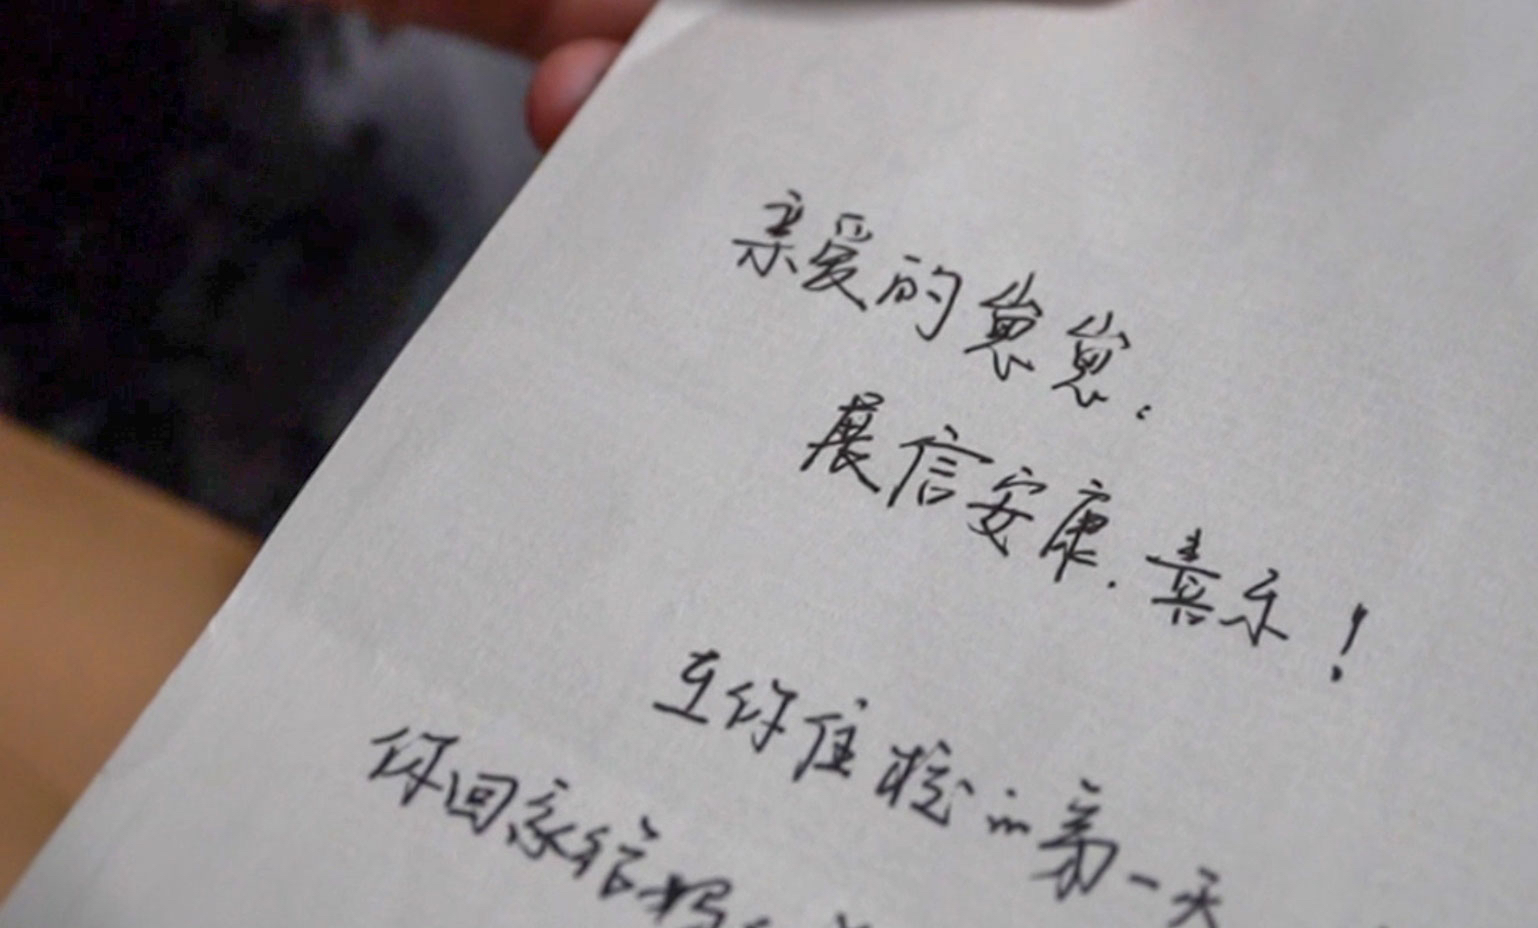 亲爱的崽崽：
展信安康、喜乐！
在你住校的第一天
你回家给妈